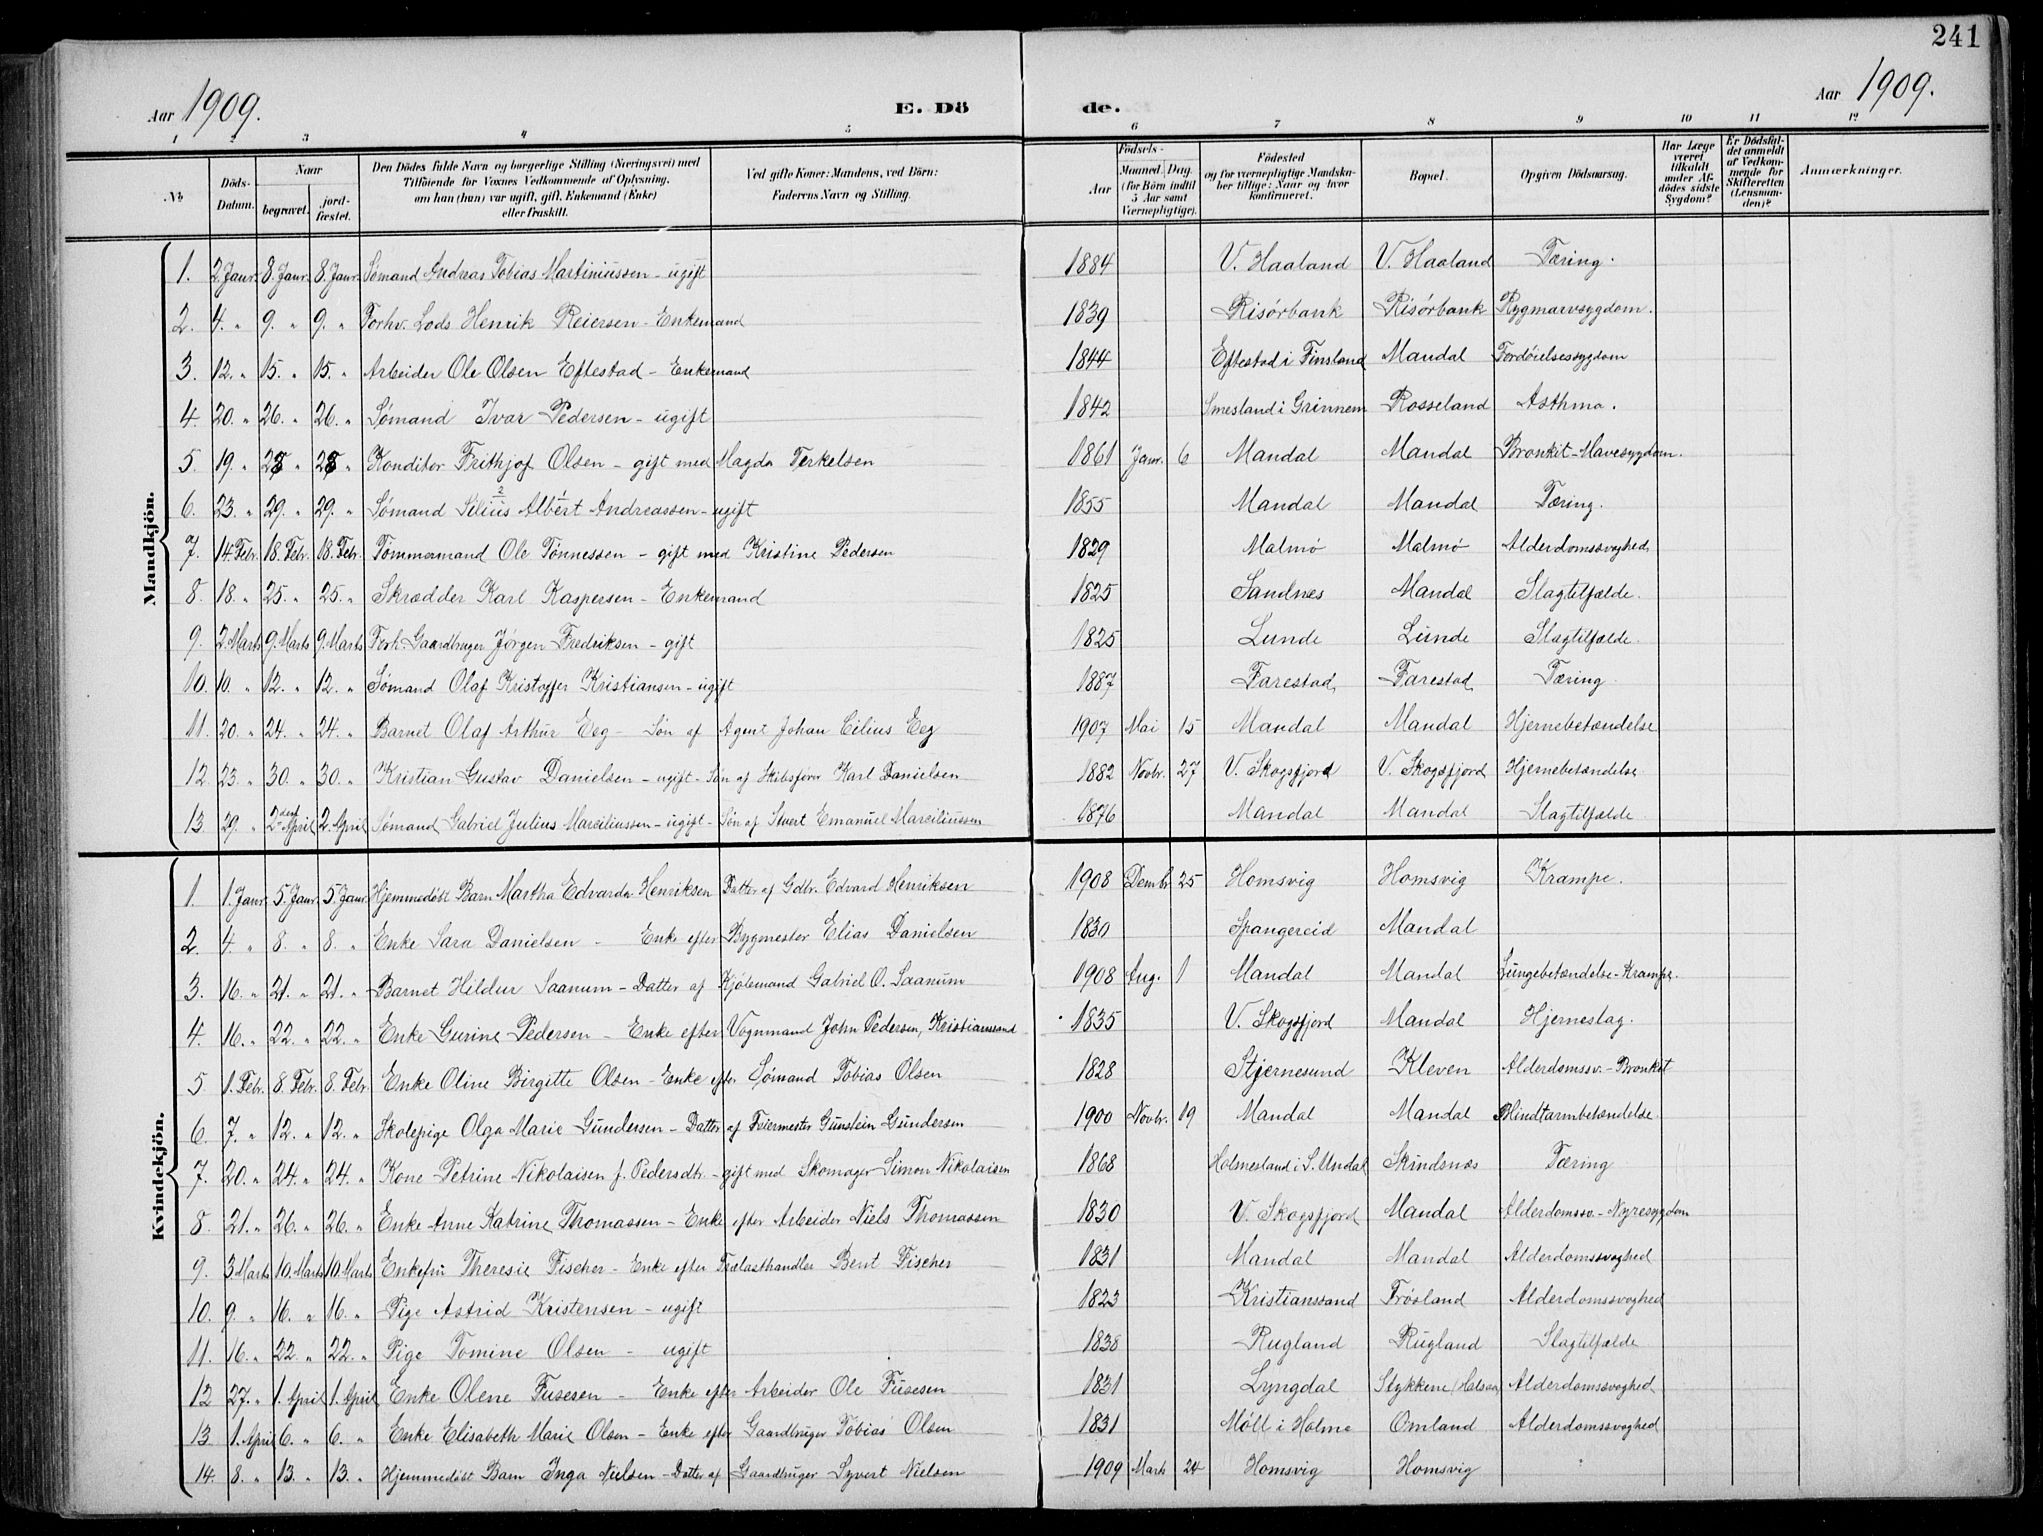 241
Aar 1909. E. Dö de. Aar 1909.
1 2 3 4 5 6 7 8 9 10 11 12
№ Döds-Datum. Naar begravet. jord-fæstet. Den Dödes fulde Navn og borgerlige Stilling (Næringsvei) med Tilföiende for Voxnes Vedkommende af Oplysning, om han (hun) var ugift, gift, Enkemand (Enke) eller fraskilt. Ved gifte Koner: Mandens, ved Börn: Faderens Navn og Stilling. Födsels- Aar Maaned. Dag. (for Börn indtil 5 Aar samt Værnepligtige). Födested og for værnepligtige Mandskaber tillige: Naar og hvor konfirmeret. Bopæl. Opgiven Dödsaarsag. Har Læge været tilkaldt under Afdödes sidste Sygdom? Er Dödsfaldet anmeldt af Vedkommende for Skifteretten (Lensmanden)? Anmærkninger.
Mandkjön.
1. 2. Janr. 8. Janr. 8. Janr. Sømand Andreas Tobias Martiniussen - ugift 1884 V. Haaland V. Haaland Tæring.
2. 4. " 9. " 9. " Forhv. Lods Henrik Reiersen - Enkemand 1839 Risørbank Risørbank Rygmarvsygdom.
3. 12. " 15. " 15. " Arbeider Ole Olsen Eftestad - Enkemand 1844 Eftestad i Finsland Mandal Fordøielsessygdom
4. 20. " 26. " 26. " Sømand Ivar Pedersen - ugift 1842 Smesland i Grinnem Rosseland Asthma.
5. 19. " " " Konditor Frithjof Olsen - gift med Magda Terkelsen 1861 Janr. 6 Mandal Mandal Bronkit - Mavesygdom.
6. 23. " 29. " 29. " Sømand Silius 2 Albert 1 Andreassen - ugift 1855 Mandal Mandal Tæring.
7. 14. Febr. 18. Febr. 18. Febr. Tømmermand Ole Tønnessen - gift med Kristine Pedersen 1829 Malmø Malmø Alderdomssvaghed
8. 18. " 25. " 25. " Skrædder Karl Kaspersen - Enkemand 1825 Sandnes Mandal Slagtilfælde.
9. 2. Marts 9. Marts 9. Marts Forh. Gaardbruger Jørgen Fredriksen - gift 1825 Lunde Lunde Slagtilfælde.
10. 10. " 12. " 12. " Sømand Olaf Kristoffer Kristiansen - ugift 1887 Farestad Farestad Tæring
11. 20. " 24. " 24. " Barnet Olaf Arthur Eeg - Søn af Agent Johan Cilius Eeg 1907 Mai 15 Mandal Mandal Hjernebetændelse
12 23. " 30. " 30. " Kristian Gustav Danielsen - ugift - Søn af Skibsfører Karl Danielsen 1882 Novbr. 27 V. Skogsfjord V. Skogsfjord Hjernebetændelse
13 29. " 2den April 2. April Sømand Gabriel Julius Marciliussen - ugift - Søn af Sivert Emanuel Marciliussen 1876 Mandal Mandal Slagtilfælde
Kvindekjön.
1. 1. Janr. 5. Janr. 5. Janr. Hjemmedøbt Barn Martha Edvarda Henriksen Datter af Gdbr. Edvard Henriksen 1908 Dembr 25 Homsvig Homsvig Krampe.
2. 4. " 8. " 8. " Enke Sara Danielsen - Enke efter Bygmester Elias Danielsen 1830 Spangereid Mandal
3. 16. " 21. " 21. " Barnet Hildur Saanum - Datter af Kjølemand Gabriel O. Saanum 1908 Aug. 1 Mandal Mandal Lungebetændelse - Krampe.
4. 16. " 22. " 22. " Enke Gurine Pedersen - Enke efter Vognmand John Pedersen, Kristianssand 1835 V. Skogsfjord Mandal Hjerneslag.
5. 1. Febr. 8. Febr. 8. Febr. Enke Oline Birgitte Olsen - Enke efter Sømand Tobias Olsen 1828 Stjernesund Kleven Alderdomssv. - Bronkit
6. 7. " 12. " 12. " Skolepige Olga Marie Gundersen - Datter af Feiermester Gunstein Gundersen 1900 Novbr. 19 Mandal Mandal Blindtarmbetændelse.
7. 20. " 24. " 24. " Kone Petrine Nikolaisen f. Pedersdtr. - gift med Skomager Simon Nikolaisen 1868 Holmesland i S. Undal Skindsnæs Tæring
8. 21. " 26. " 26. " Enke Anne Katrine Thomassen - Enke efter Arbeider Niels Thomassen 1830 V. Skogsfjord Mandal Alderdomssv. - Nyresygdom
9. 3. Marts 10. Marts 10. Marts Enkefru Theresie Fischer - Enke efter Trælasthandler Bent Fischer 1831 Mandal Mandal Alderdomssvaghed
10. 9. " 16. " 16. " Pige Astrid Kristensen - ugift 1823 Kristianssand Frøsland Alderdomssvaghed
11. 16. " 22. " 22. " Pige Tomine Olsen - ugift 1838 Rugland Rugland Slagtilfælde
12 27. " 1. April 1. April Enke Olene Fusesen - Enke efter Arbeider Ole Fusesen 1831 Lyngdal Stykkene Alderdomssvaghed
13 1. April 6. " 6. " Enke Elisabeth Marie Olsen - Enke efter Gaardbruger Tobias Olsen 1831 Møll i Holme Omland Alderdomssvaghed
14. 8. " 13. " 13. " Hjemmedøbt Barn Inga Nielsen - Datter af Gaardbruger Syvert Nielsen 1909 Marts 24 Homsvig Homsvig "